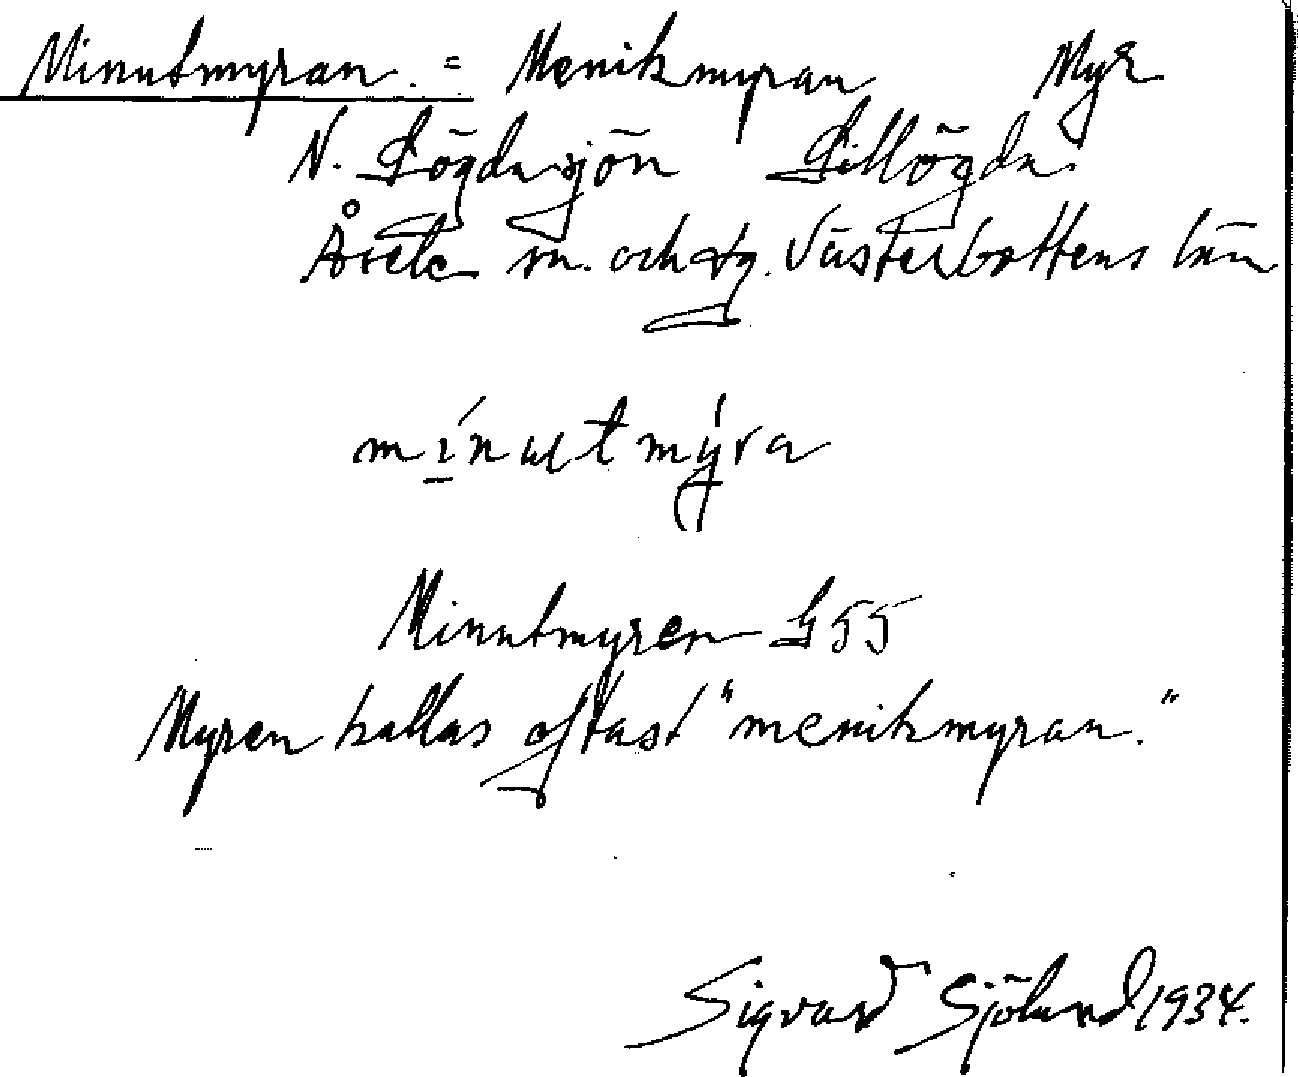 Minutmyran. = Menikmyran Myr
N. Lögdasjön Lillögda
Åsele sn. och tg. Västerbottens län
mínutmýra
Minutmyren G 55
Myren kallas oftast "menikmyran."
Sigvard Sjölund 1934.